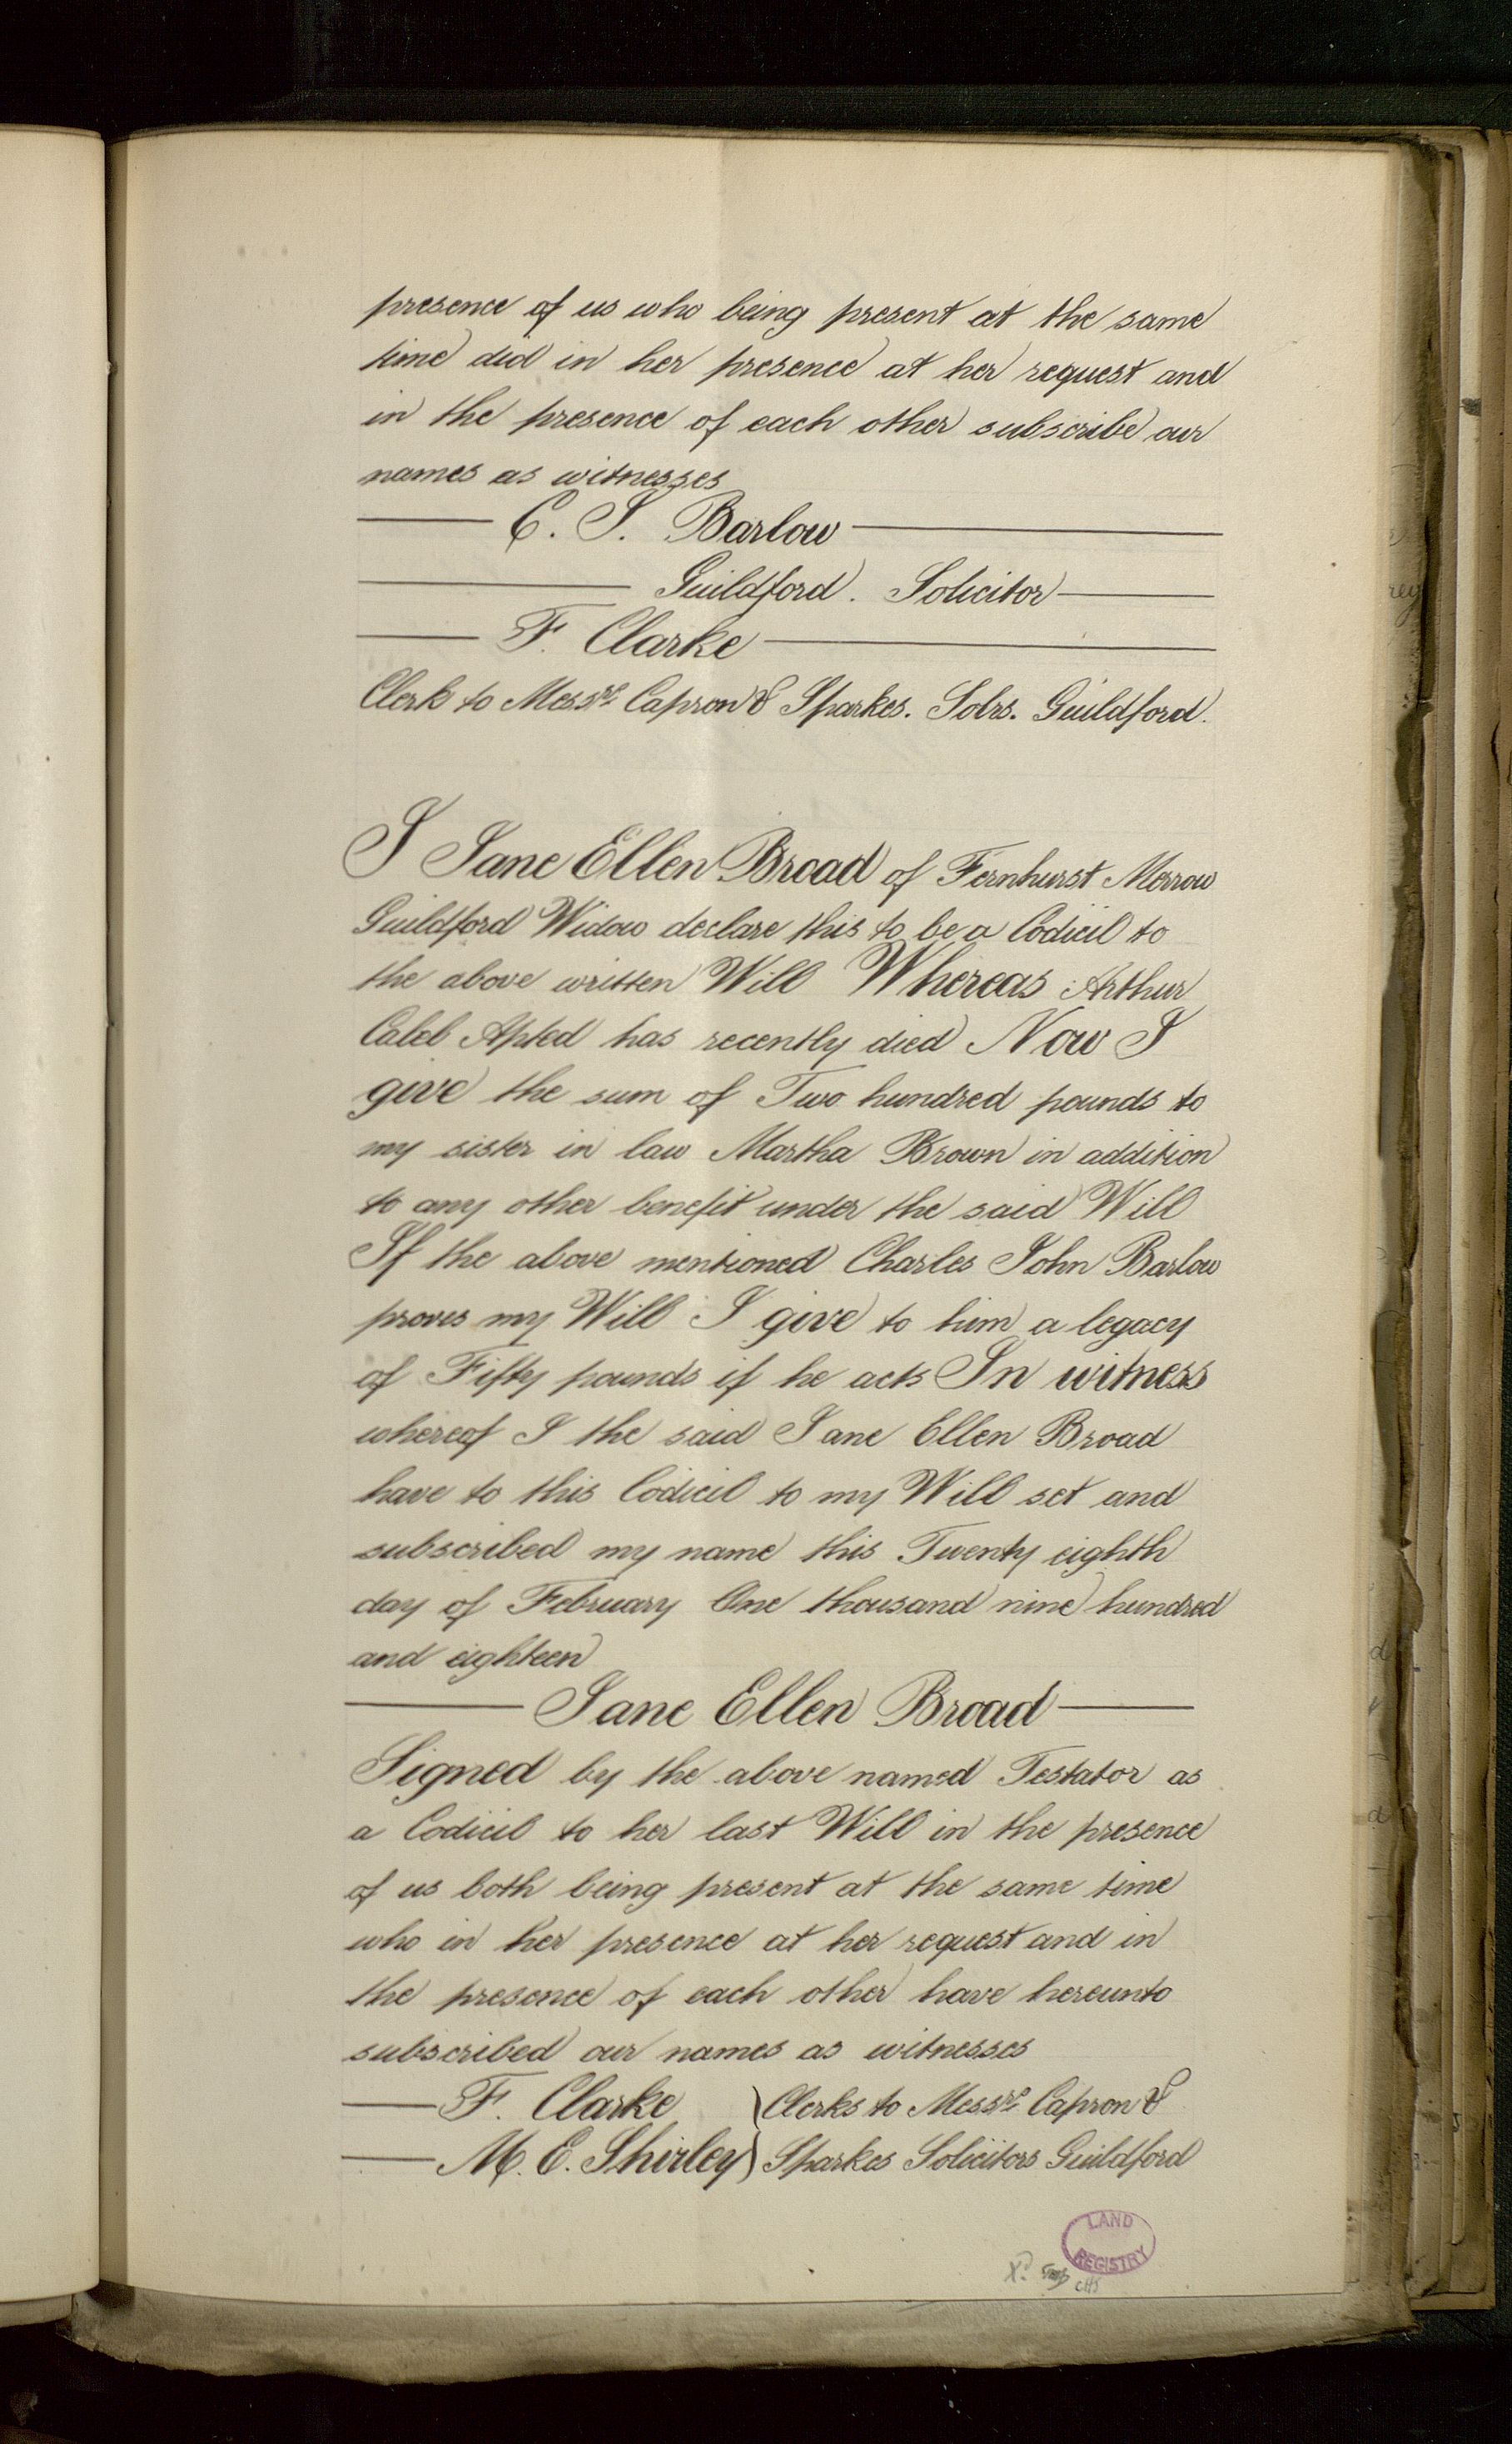 presence of us who being present at the same
time did in her presence at her request and
in the presence of each other subscribe our
names as witnesses
C. J. Barlow
Guildford. Solicitor
F. Clarke
Clerk to Messrs. Capron & Sparkes. Solrs. Guildford.
I Jane Ellen Broad of Fernhurst Merrow
Guildford Widow declare this to be a Codicil to
the above written Will Whereas Arthur
Caleb Apted has recently died Now I
give the sum of Two hundred pounds to
my sister in law Martha Brown in addition
to any other benefit under the said Will
If the above mentioned Charles John Barlow
proves my Will I give to him a legacy
of Fifty pounds if he acts In witness
whereof I the said Jane Ellen Broad
have to this Codicil to my Will set and
subscribed my name this Twenty eighth
day of February One thousand nine hundred
and eighteen
Jane Ellen Broad
Signed by the above named Testator as
a Codicil to her last Will in the presence
of us both being present at the same time
who in her presence at her request and in
the presence of each other have hereunto
subscribed our names as witnesses
F. Clarke } Clerks to Messrs. Capron &
M. E. Shirley } Sparkes Solicitors Guildford
LAND
REGISTRY